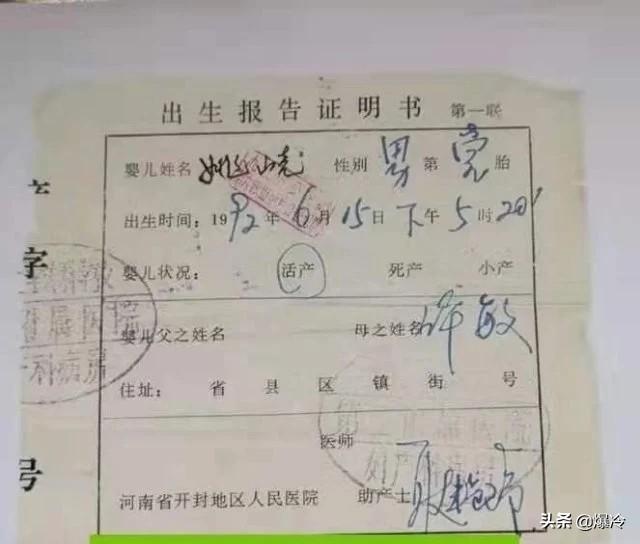 出生报告证明书 第一联
婴儿姓名 姚 性别 男 第 壹 胎
出生时间：1992年6月15日下午5时20'
婴儿状况： 活产 死产 小产
婴儿父之姓名 母之姓名 许敏
住址： 省 县 区 镇 街 号
医师
河南省开封地区人民医院 助产士
字
号
附属医院
科病房
附属医院
妇产
头条 @爆冷